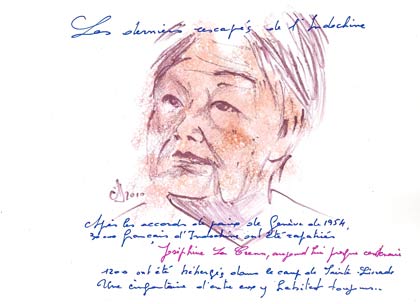 Les derniers rescapés de l'Indochine
2010
Après les accords de paix de Genève de 1954,
français d'Indochine ont été rapatriés
Joséphine Le Crenn, aujourd'hui presque centenaire
1200 ont été hébergés dans le camp de Sainte-Livrade
Une cinquantaine d'entre eux y habitent toujours...